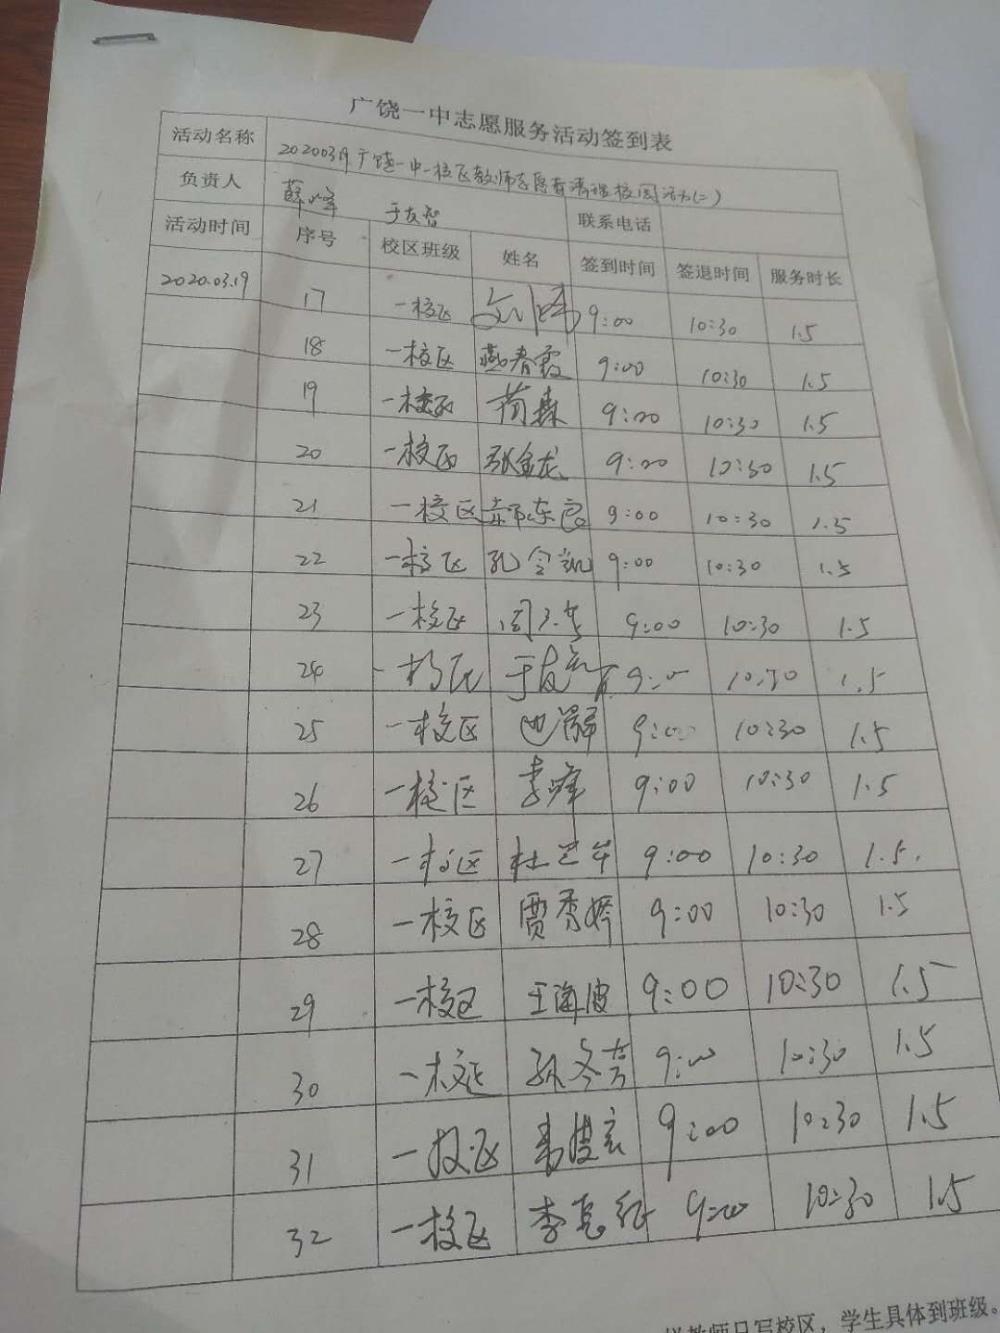 广饶一中志愿服务活动签到表
活动名称 20200319广饶一中一校区教师志愿者清理校园活动(二)
负责人 薛峰 于友智 联系电话
活动时间 序号 校区班级 姓名 签到时间 签退时间 服务时长
2020.03.19 17 一校区 9:00 10:30 1.5
18 一校区 燕春霞 9:00 10:30 1.5
19 一校区 荷森 9:00 10:30 1.5
20 一校区 张金龙 9:00 10:30 1.5
21 一校区 9:00 10:30 1.5
22 一校区 孔令凯 9:00 10:30 1.5
23 一校区 9:00 10:30 1.5
24 一校区 9:00 10:30 1.5
25 一校区 9:00 10:30 1.5
26 一校区 李峰 9:00 10:30 1.5
27 一校区 杜兰华 9:00 10:30 1.5.
28 一校区 贾秀婷 9:00 10:30 1.5
29 一校区 王海波 9:00 10:30 1.5
30 一校区 孙冬吉 9:00 10:30 1.5
31 一校区 9:00 10:30 1.5
32 一校区 李克征 9:00 10:30 1.5
教师只写校区，学生具体到班级。